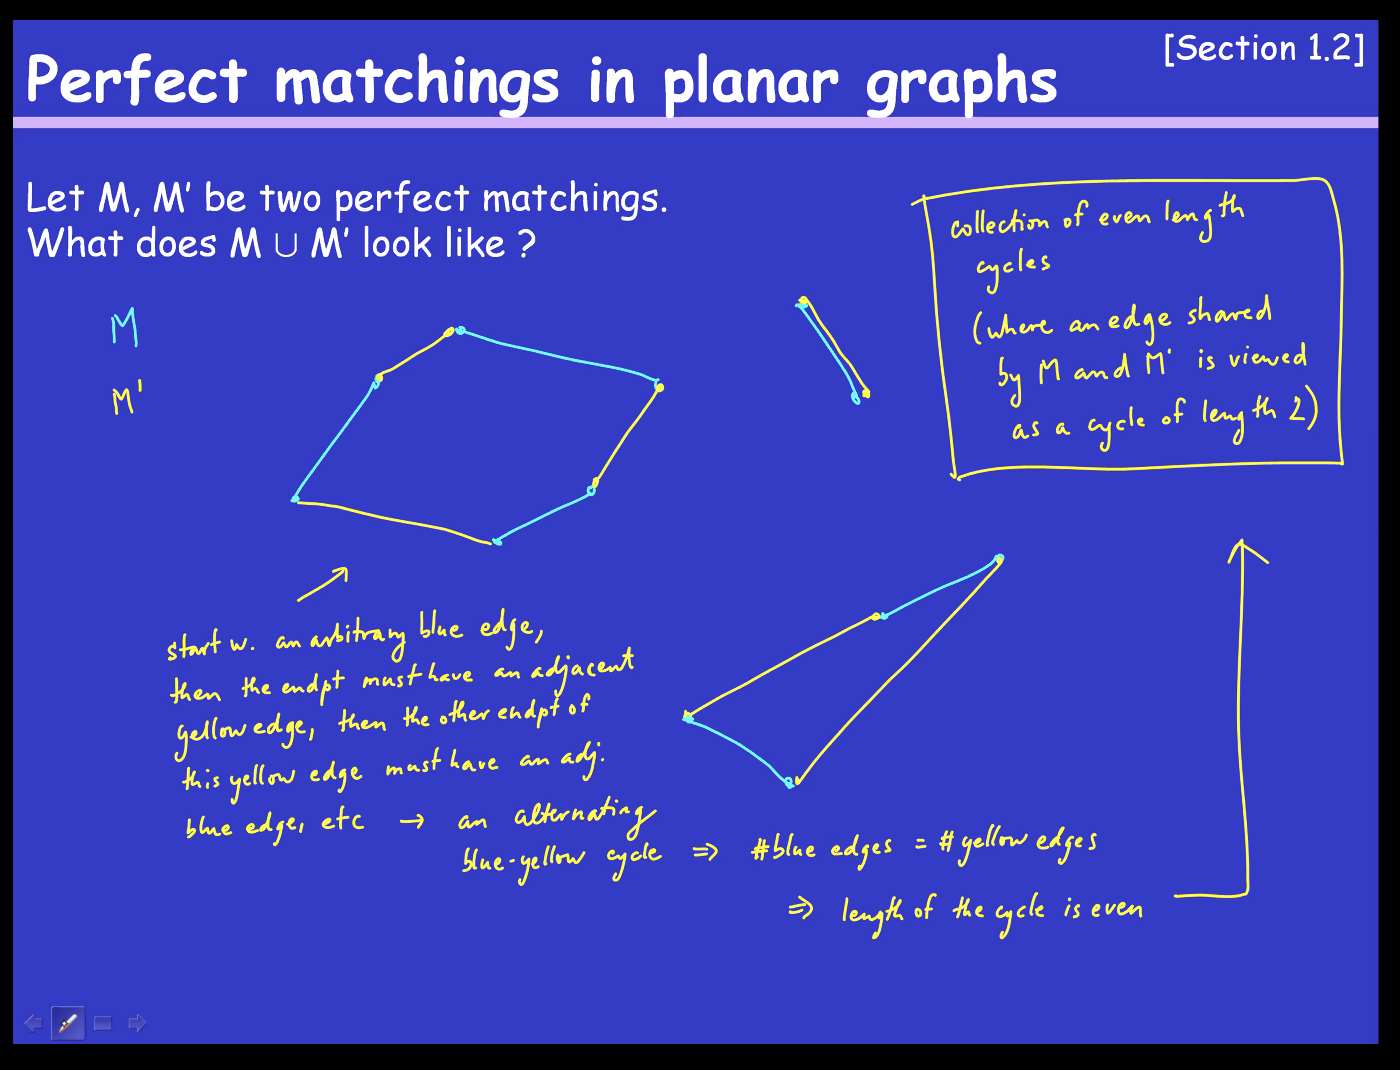 [Section 1.2]
Perfect matchings in planar graphs
Let M, M' be two perfect matchings.
What does M ∪ M' look like ?
collection of even length
cycles
(where an edge shared
by M and M' is viewed
as a cycle of length 2)
M
M'
start w. an arbitrary blue edge,
then the endpt must have an adjacent
yellow edge, then the other endpt of
this yellow edge must have an adj.
blue edge, etc → an alternating
blue-yellow cycle ⇒ #blue edges = #yellow edges
⇒ length of the cycle is even